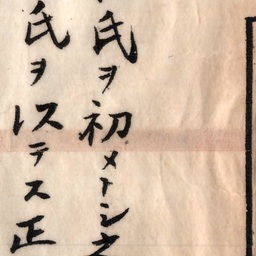 氏ヲ初メトシ
氏ヲ以テス正